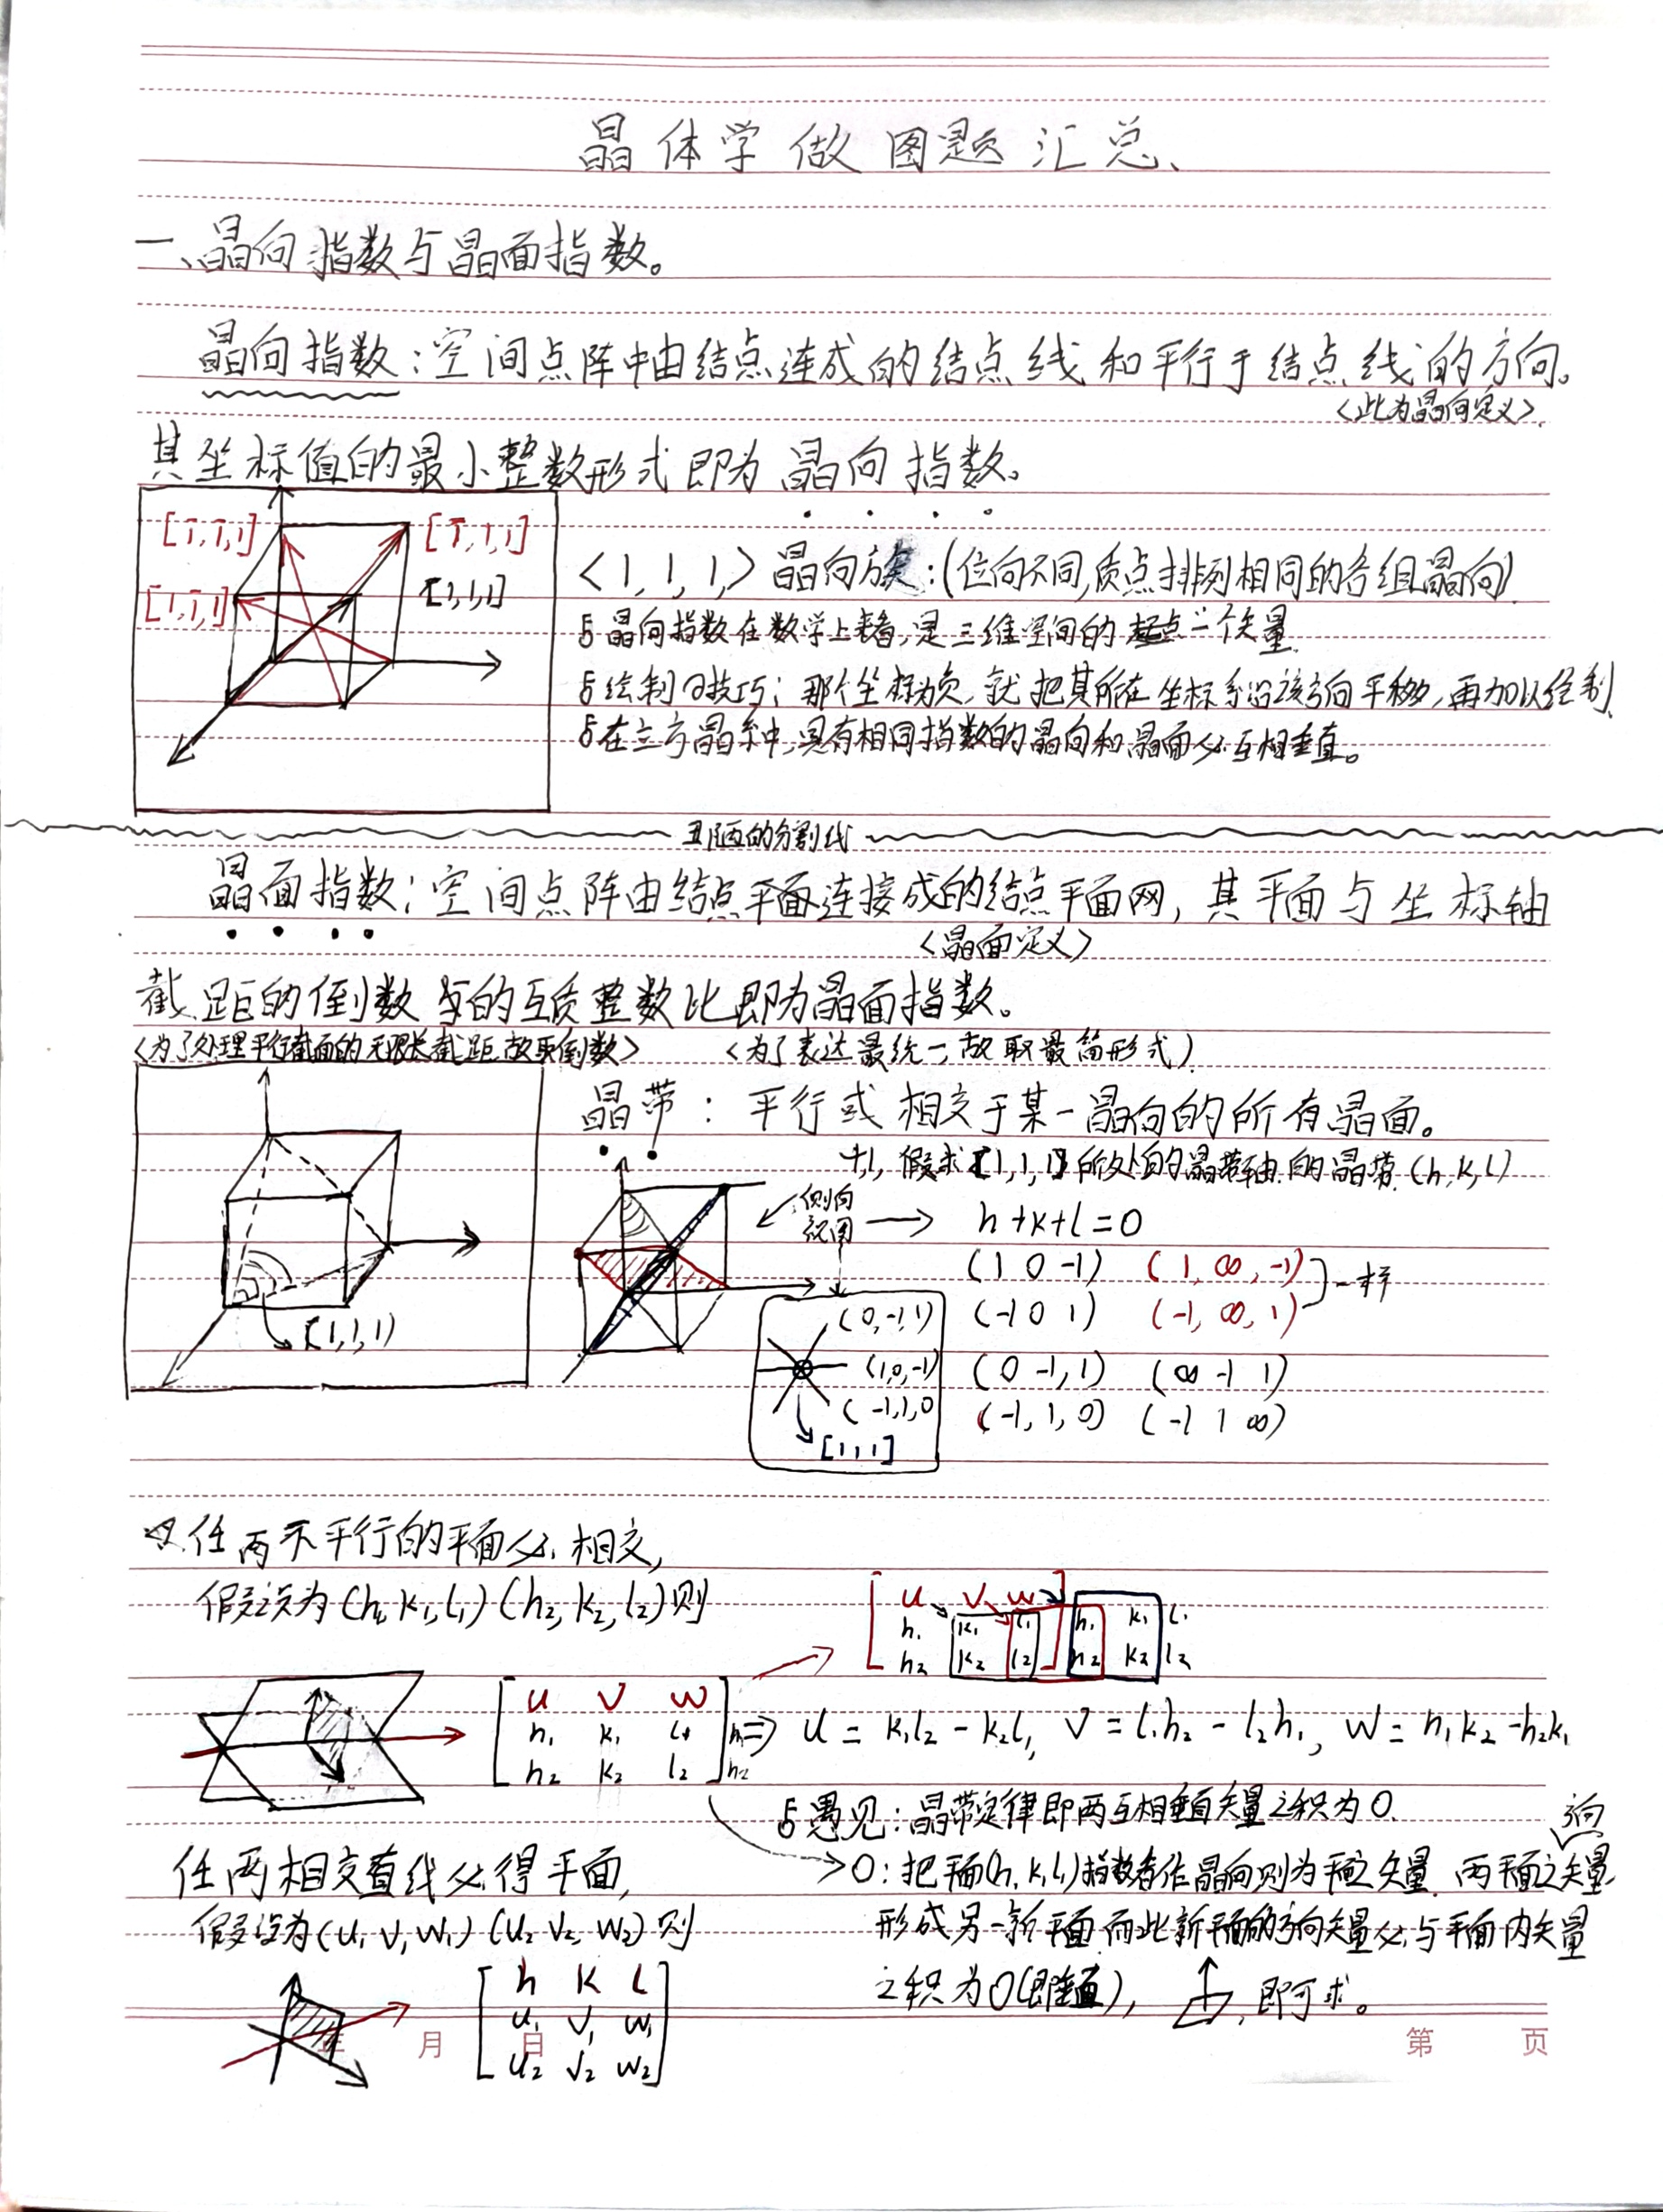 晶体学做图题汇总、
一、晶向指数与晶面指数。
晶向指数:空间点阵中由结点连成的结点线和平行于结点线的方向。
<此为晶向定义>.
其坐标值的最小整数形式即为晶向指数。
[1̄,1̄,1]
[1̄,1,1]
[1,1̄,1]
[1,1,1]
<1,1,1,>晶向族:(位向不同,质点排列相同的各组晶向)
晶向指数在数学上表看,是三维空间的一个矢量.
绘制的技巧:那个坐标为负,就把其所在坐标系沿该方向平移,再加以绘制.
在立方晶系中,具有相同指数的晶向和晶面必互相垂直。
丑陋的分割线
晶面指数:空间点阵由结点平面连接成的结点平面网,其平面与坐标轴
<晶面定义>
截距的倒数的互质整数比即为晶面指数。
<为了处理平行截面的无限长截距故取倒数>
<为了表达最统一,故取最简形式>
(1,1,1)
晶带:平行或相交于某一晶向的所有晶面。
假求[1,1,1]所处的晶带轴的晶带(h,k,l)
侧向
视图
h+k+l=0
(1 0 -1) (1,∞,-1)
(-1 0 1) (-1,∞,1)
一样
(0 -1,1) (∞ -1 1)
(-1,1,0) (-1 1 ∞)
(0,-1,1)
(1,0,-1)
(-1,1,0
[1,1,1]
任两不平行的平面必相交,
假设为(h₁k₁,l₁)(h₂,k₂,l₂)则
u v w
h₁ k₁ l₁ h₁ k₁ l₁
h₂ k₂ l₂ h₂ k₂ l₂
u v w
h₁ k₁ l₁ h₁
h₂ k₂ l₂ h₂
⇒ u = k₁l₂ - k₂l₁, v = l₁h₂ - l₂h₁, w = h₁k₂ - h₂k₁
愚见:晶带定律即两互相垂直矢量之积为0.
0:把平面(h,k,l)指数看作晶向则为平面之矢量.两平面之方向矢量
形成另一新平面而此新平面的方向矢量必与平面内矢量
之积为0(即垂直),即可求。
任两相交直线必得平面,
假设为(u₁v₁w₁)(u₂v₂w₂)则
h k l
u₁ v₁ w₁
u₂ v₂ w₂
年 月 日
第 页